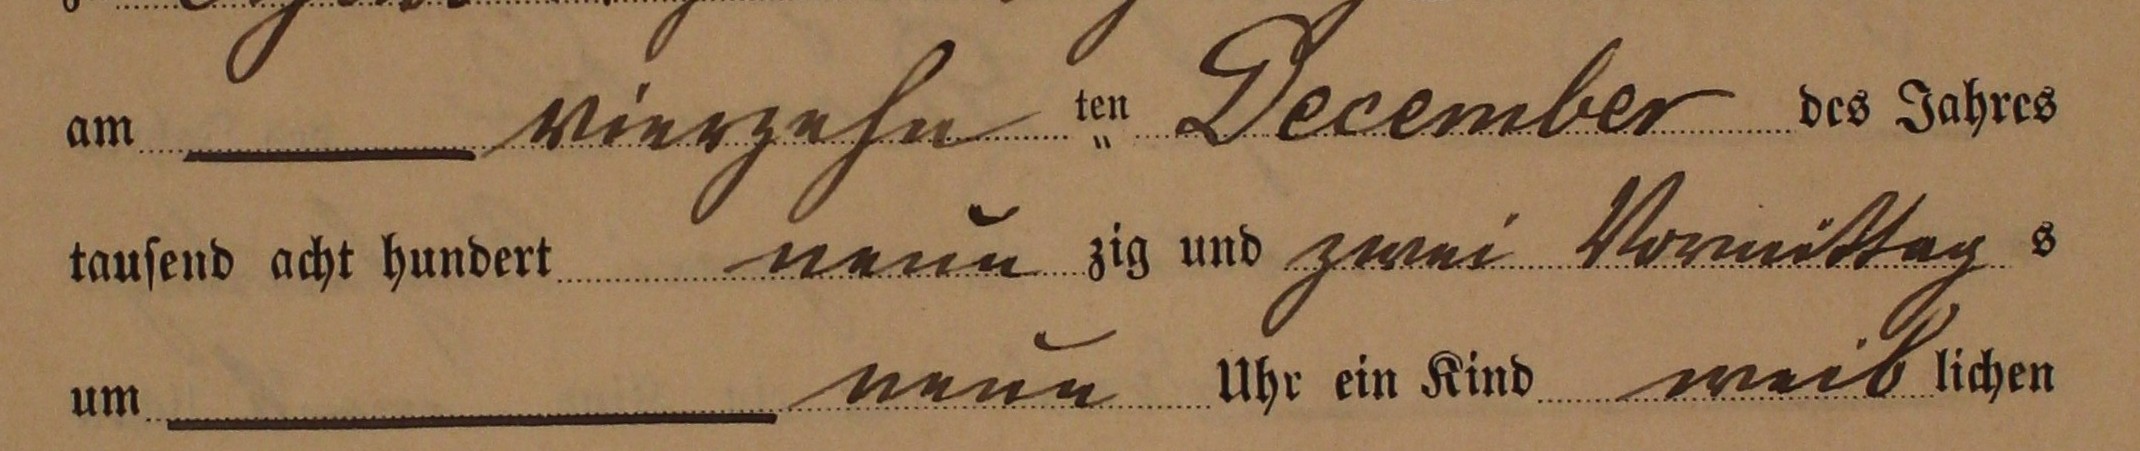 am vierzehn ten December des Jahres
tausend acht hundert neun zig und zwei Vormittag s
um neun Uhr ein Kind weib lichen